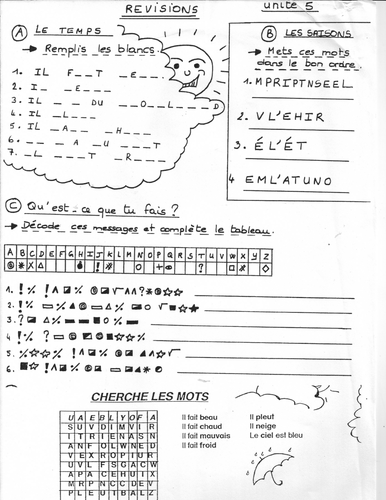 REVISIONS unité 5
A LE TEMPS
→ Remplis les blancs.
1. IL F _ _ T _ E _ _ .
2. I _ _ E _ _ _
3. IL _ _ DU _ _ O _ L _ _ D
4. IL _ L _ _ _
5. IL _ A _ _ H _ _ _
6. _ _ _ A _ U _ _ T
7. _ L _ _ _ T _ R _ _ _
B LES SAISONS
→ Mets ces mots dans le bon ordre.
1. MPRIPTNSEEL
2. VL'EHIR
3. ÉL'ÉT
4 EML'ATUNO
C Qu'est-ce que tu fais?
→ Décode ces messages et complète le tableau.
A B C D E F G H I J K L M N O P Q R S T U V W X Y Z
1.
2.
3.
4.
5.
6.
CHERCHE LES MOTS
U A E B L Y O F A
S U V D I M V I R
I T R I E N A S N
A N F O L W N E D
V E X R O P I U R
U V L F S G A C W
A P A C E H U I X
M R P N C C D E V
P L E U T B A L Z
Il fait beau
Il fait chaud
Il fait mauvais
Il fait froid
Il pleut
Il neige
Le ciel est bleu